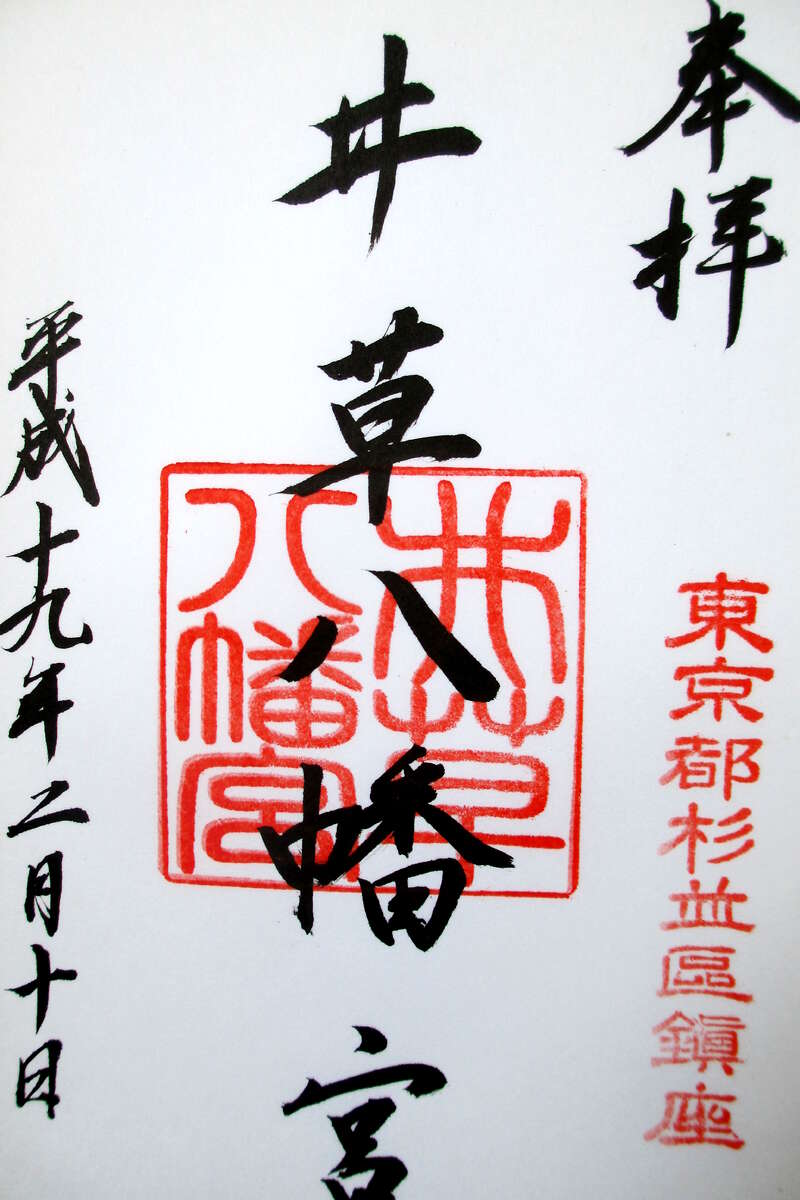 奉拝
東京都杉並區鎭座
井草八幡宮
井草
八幡宮
平成十九年二月十日